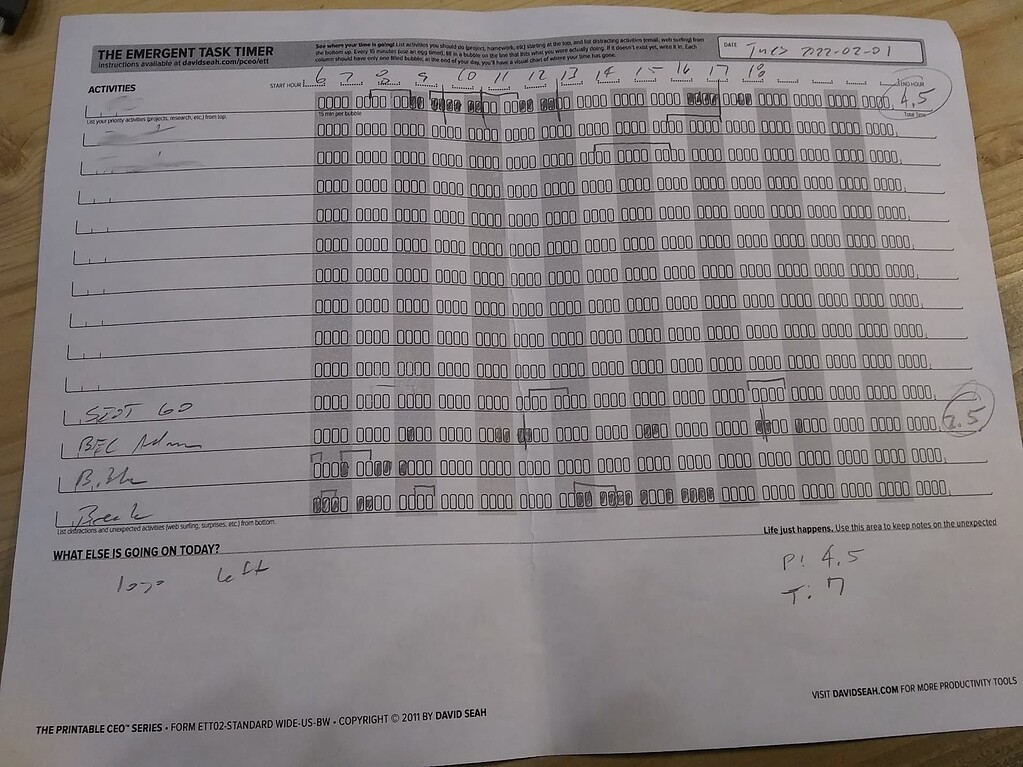 THE EMERGENT TASK TIMER
instructions available at davidseah.com/pceo/ett
See where your time is going! List activities you should do (project, homework, etc) starting at the top, and list distracting activities (email, web surfing) from
the bottom up. Every 15 minutes (use an egg timer), fill in a bubble on the line that lists what you were actually doing. If it doesn't exist yet, write it in. Each
column should have only one filled bubble; at the end of your day, you'll have a visual chart of where your time has gone.
DATE Tues 2022-02-01
ACTIVITIES
START HOUR 6 7 8 9 10 11 12 13 14 15 16 17 18 END HOUR
4.5
Total Time
List your priority activities (projects, research, etc.) from top.
15 min per bubble
60
BEC Admin
2.5
Break
List distractions and unexpected activities (web surfing, surprises, etc.) from bottom.
WHAT ELSE IS GOING ON TODAY?
Life just happens. Use this area to keep notes on the unexpected
left
P: 4.5
T: 7
VISIT DAVIDSEAH.COM FOR MORE PRODUCTIVITY TOOLS
THE PRINTABLE CEO™ SERIES • FORM ETT02-STANDARD WIDE-US-BW • COPYRIGHT © 2011 BY DAVID SEAH